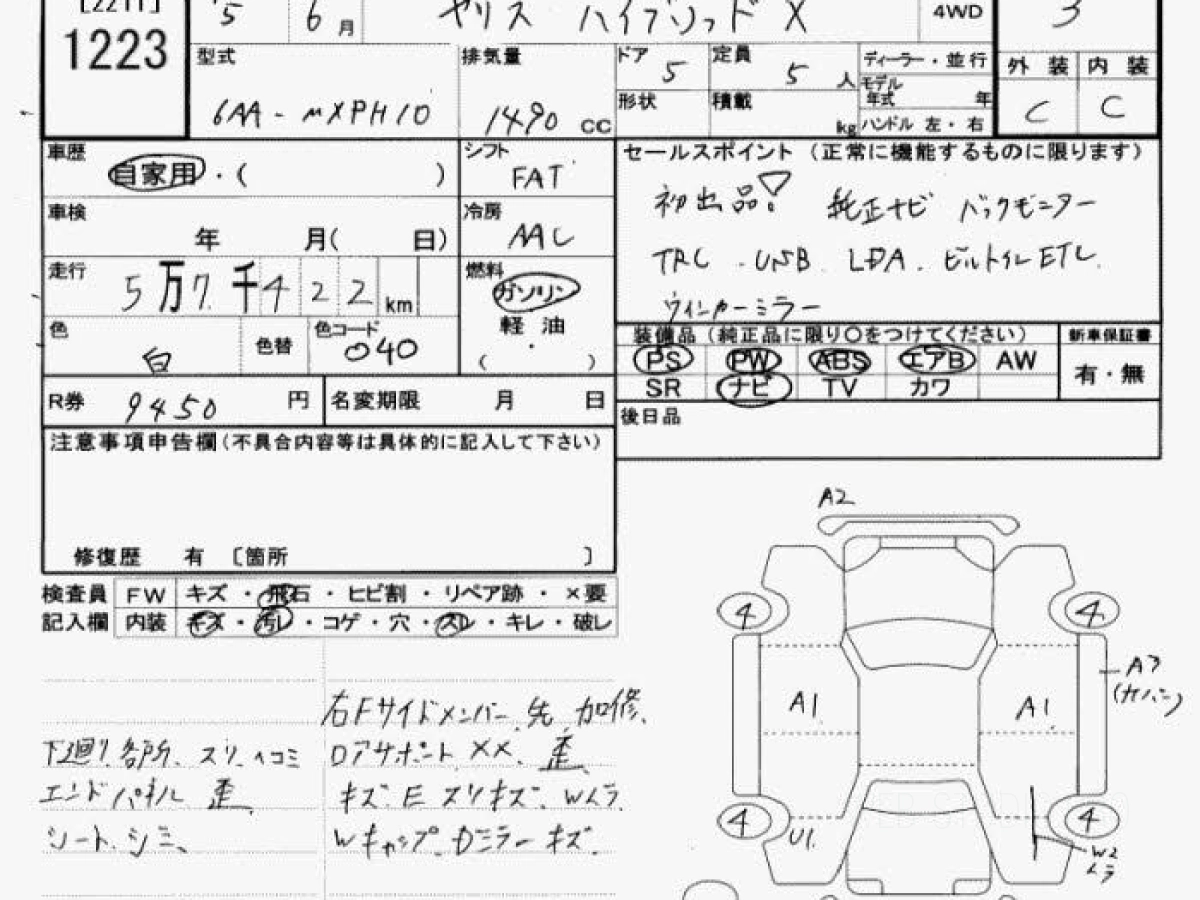 [2211]
1223
5 6月
ヤリス ハイブリッド X
4WD
3
型式 6AA-MXPH10
排気量 1490 CC
ドア 5
定員 5人
形状
積載 kg
ディーラー・並行
モデル年式 年
ハンドル 左・右
外装 内装
C C
車歴 自家用・( )
シフト FAT
セールスポイント (正常に機能するものに限ります)
初出品! 純正ナビ バックモニター
TRC . USB. LDA. ビルトインETC.
ウィンカーミラー
車検 年 月( 日)
冷房 AAC
走行 5万7千422km
燃料 ガソリン
軽油
・
( )
色 白
色替
色コード 040
装備品 (純正品に限り○をつけてください)
新車保証書
PS PW ABS エアB AW
SR ナビ TV カワ
有・無
R券 9450円
名変期限 月 日
後日品
注意事項申告欄(不具合内容等は具体的に記入して下さい)
修復歴 有 〔箇所 〕
検査員 FW キズ・飛石・ヒビ割・リペア跡・×要
記入欄 内装 キズ・汚レ・コゲ・穴・スレ・キレ・破レ
右Fサイドメンバー先 加修、
下廻り各所、スリ、ヘコミ
エンドパネル 歪
シート、シミ、
ロアサポート XX、歪
キズ E スリキズ. Wムラ
Wキャップ. Dミラーキズ.
A2
4 4
A3
(カバー)
A1 A1
4 4
U1.
W2
ムラ